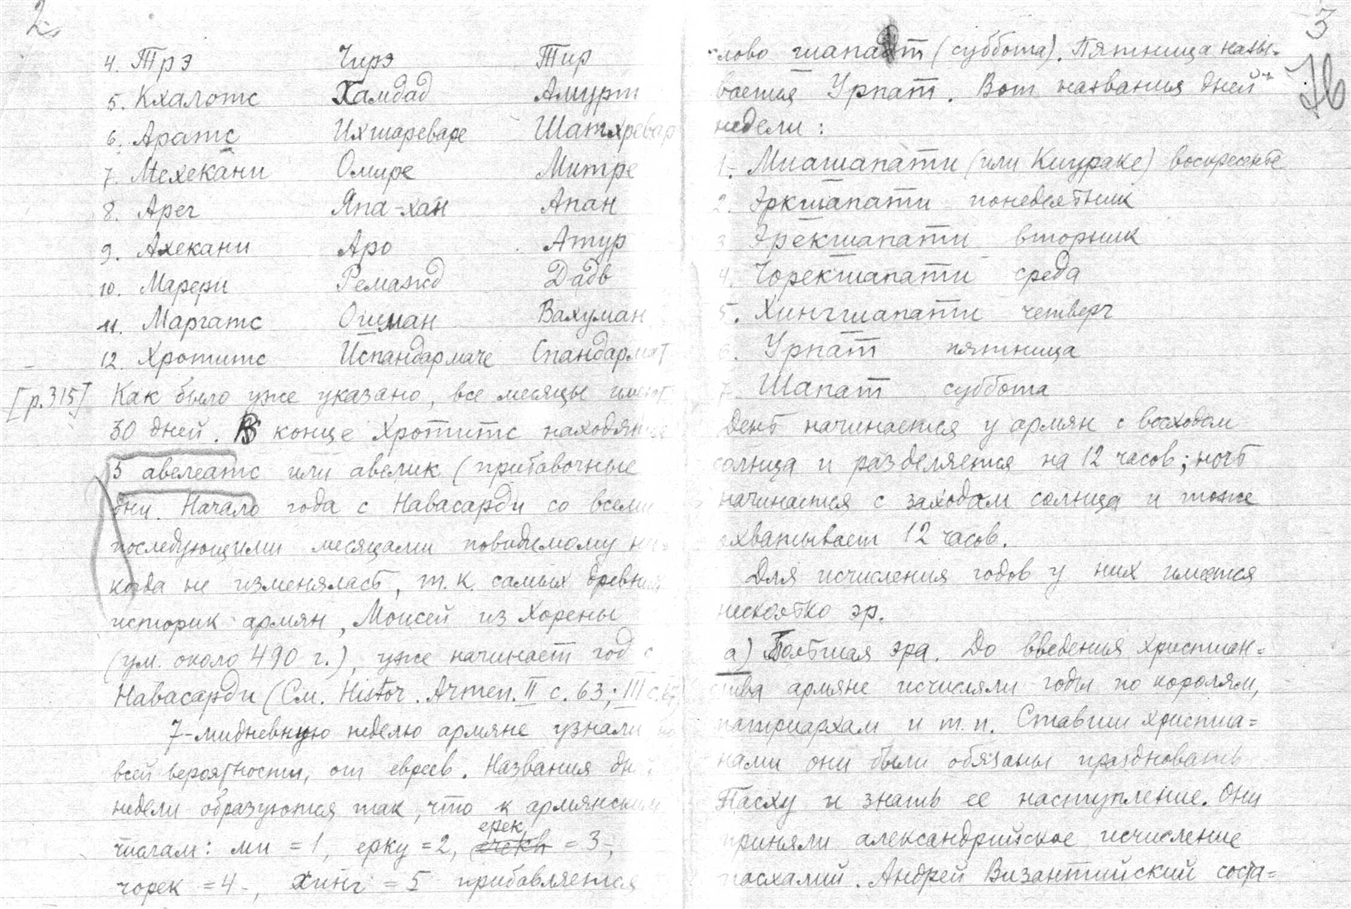 2.
4. Трэ Чирэ Тир
5. Кхалотс Хамдад Амурт
6. Аратс Ихшареваре Шатхревар
7. Мехекани Омире Митре
8. Арег Япа-хан Апан
9. Ахекани Аро Атур
10. Марери Ремажд Дадв
11. Маргатс Ошман Вахуман
12. Хротитс Испандармаче Спандармат
[p.315] Как было уже указано, все месяцы имеют
30 дней. В конце Хротитс находятся
5 авелеатс или авелик (прибавочные
дни. Начало года с Навасарди со всеми
последующими месяцами повидимому ни-
когда не изменялась, т.к. самых древний
историк армян, Моисей из Хорены
(ум. около 490 г.), уже начинает год с
Навасарди (См. Histor. Armen. II с. 63; III с.
7-мидневную неделю армяне узнали по
всей вероятности, от евреев. Названия дн
недели образуются так, что к армянским
числам: ми = 1, ерку = 2, ерек = 3-,
чорек = 4-, хинг = 5 прибавляется
3
76
слово шапат (суббота). Пятница назы-
вается Урпат. Вот названия дней
недели:
1. Миашапати (или Киураке) воскресенье
2. Эркшапати понедельник
3. Эрекшапати вторник
4. Чорекшапати среда
5. Хингшапати четверг
6. Урпат пятница
7. Шапат суббота
День начинается у армян с восходом
солнца и разделяется на 12 часов; ночь
начинается с заходом солнца и тоже
охватывает 12 часов.
Для исчисления годов у них имеется
несколько эр.
а) Большая эра. До введения христиан=
ства армяне исчисляли годы по королям,
патриархам и т.п. Ставши христиа=
нами они были обязаны праздновать
Пасху и знать ее наступление. Они
приняли александрийское исчисление
пасхалий. Андрей Византийский соста=